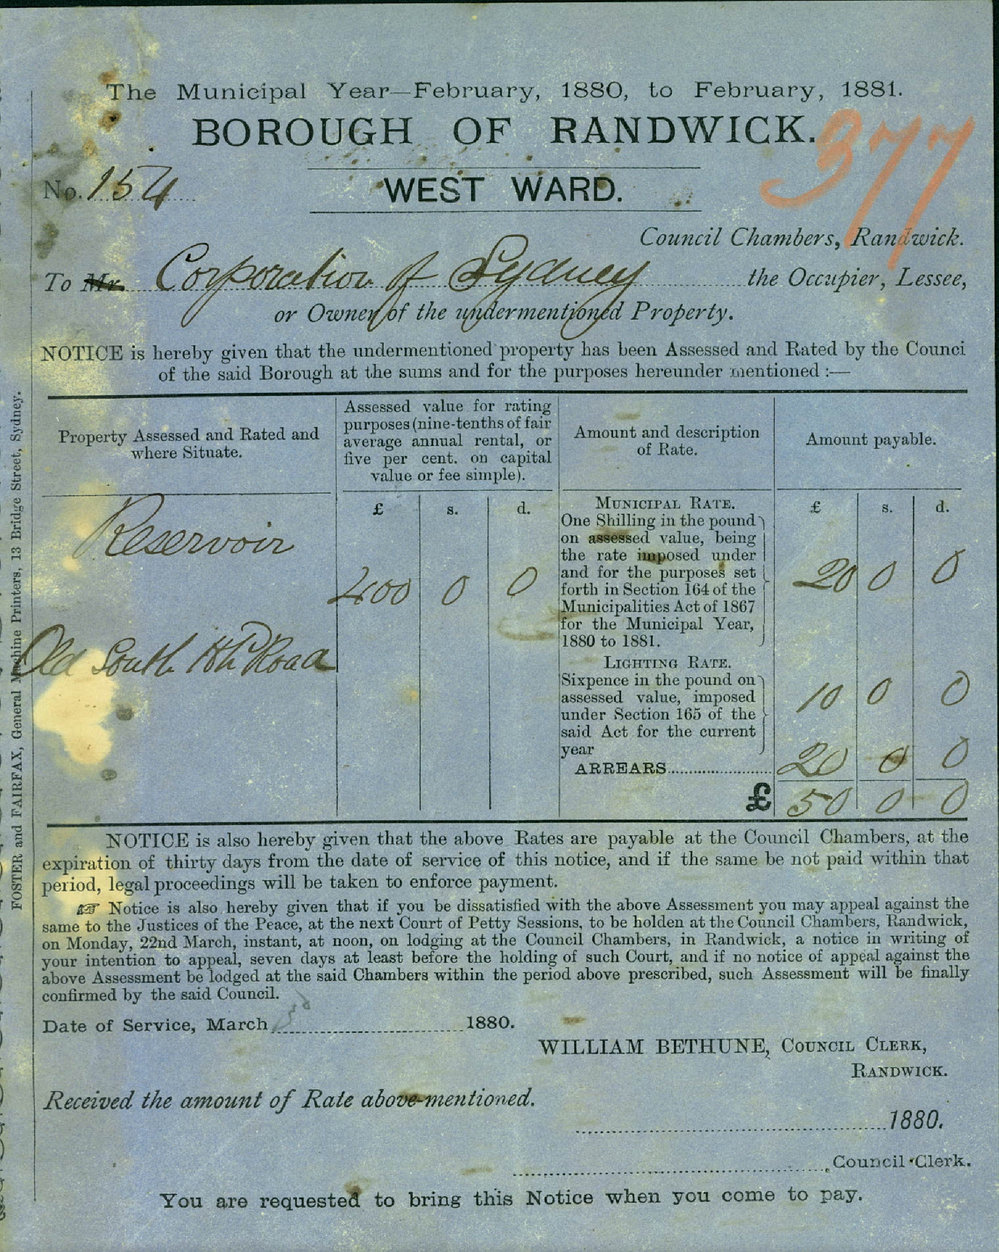 The Municipal Year—February, 1880, to February, 1881.
BOROUGH OF RANDWICK.
377
No. 154
WEST WARD.
Council Chambers, Randwick.
To Mr. Corporation of Sydney the Occupier, Lessee,
or Owner of the undermentioned Property.
NOTICE is hereby given that the undermentioned property has been Assessed and Rated by the Counci
of the said Borough at the sums and for the purposes hereunder mentioned :—
Property Assessed and Rated and
where Situate.
Assessed value for rating
purposes (nine-tenths of fair
average annual rental, or
five per cent. on capital
value or fee simple).
Amount and description
of Rate.
Amount payable.
£ s. d.
£ s. d.
Reservoir
400 0 0
Old South Hd Road
MUNICIPAL RATE.
One Shilling in the pound
on assessed value, being
the rate imposed under
and for the purposes set
forth in Section 164 of the
Municipalities Act of 1867
for the Municipal Year,
1880 to 1881.
20 0 0
LIGHTING RATE.
Sixpence in the pound on
assessed value, imposed
under Section 165 of the
said Act for the current
year
10 0 0
ARREARS............... 20 0 0
£ 50 0 0
NOTICE is also hereby given that the above Rates are payable at the Council Chambers, at the
expiration of thirty days from the date of service of this notice, and if the same be not paid within that
period, legal proceedings will be taken to enforce payment.
☞ Notice is also hereby given that if you be dissatisfied with the above Assessment you may appeal against the
same to the Justices of the Peace, at the next Court of Petty Sessions, to be holden at the Council Chambers, Randwick,
on Monday, 22nd March, instant, at noon, on lodging at the Council Chambers, in Randwick, a notice in writing of
your intention to appeal, seven days at least before the holding of such Court, and if no notice of appeal against the
above Assessment be lodged at the said Chambers within the period above prescribed, such Assessment will be finally
confirmed by the said Council.
Date of Service, March 1880.
WILLIAM BETHUNE, COUNCIL CLERK,
RANDWICK.
Received the amount of Rate above-mentioned.
1880.
Council Clerk.
You are requested to bring this Notice when you come to pay.
FOSTER and FAIRFAX, General Machine Printers, 13 Bridge Street, Sydney.